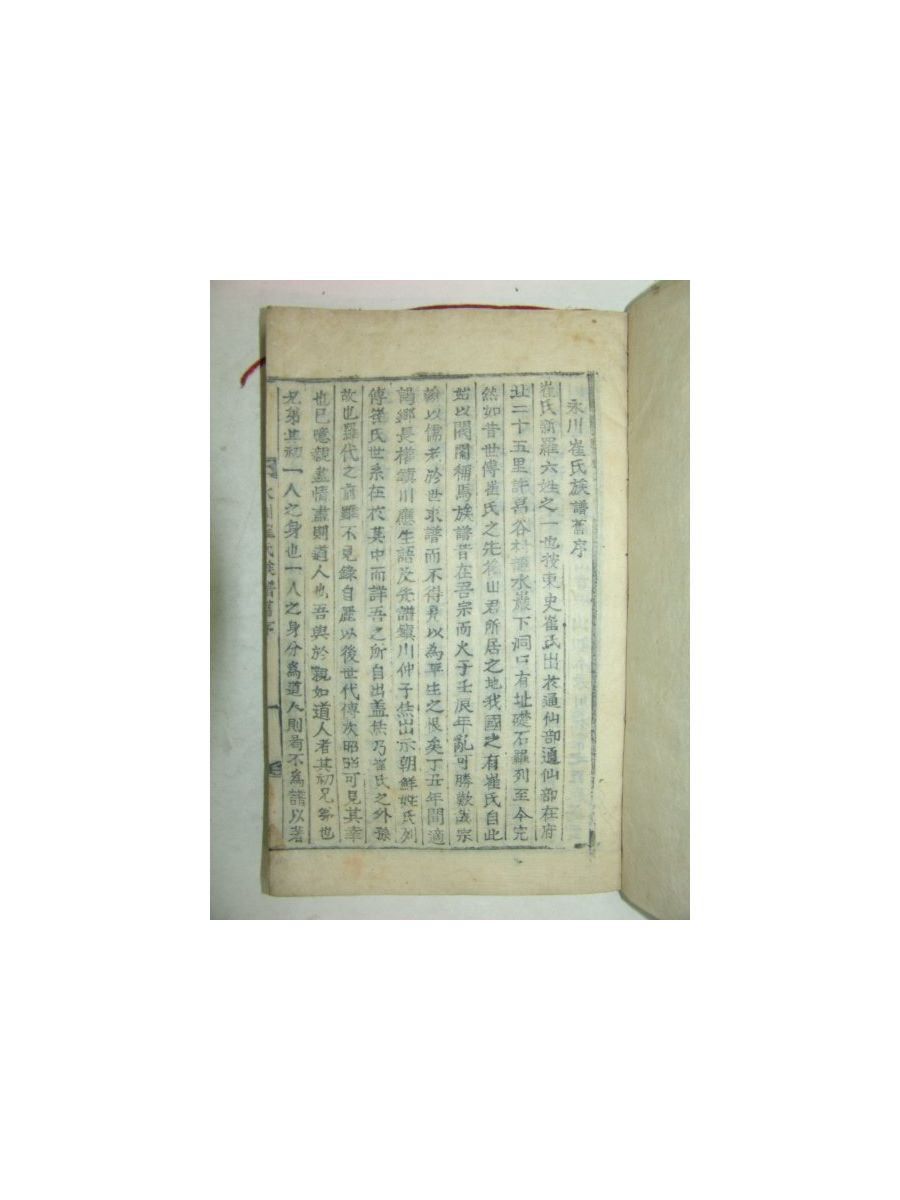 永川崔氏族譜舊序
崔氏新羅六姓之一也按東史崔氏出於通仙部通仙部在府
北二十五里許昌谷村水巖下洞口有址礎石羅列至今完
然如昔世傳崔氏之先山君所居之地我國之有崔氏自此
始以閥閱稱焉族譜昔在吾宗而火于壬辰年亂可勝歎哉宗
以儒老於世求譜而不得見以為平生之恨矣丁丑年間適
謁鄉長様鎮川應生語及先譜鎮川仲子焂出示朝鮮姓氏列
傳崔氏世系在於其中而詳吾之所自出盖焂乃崔氏之外孫
故也羅代之前雖不見錄自麗以後世代傳次昭昭可見其幸
也已噫親盡情盡則道人也吾與於親如道人者其初兄弟也
兄弟其初一人之身也一人之身分為道人則若不為譜以著
永川崔氏族譜舊序
一